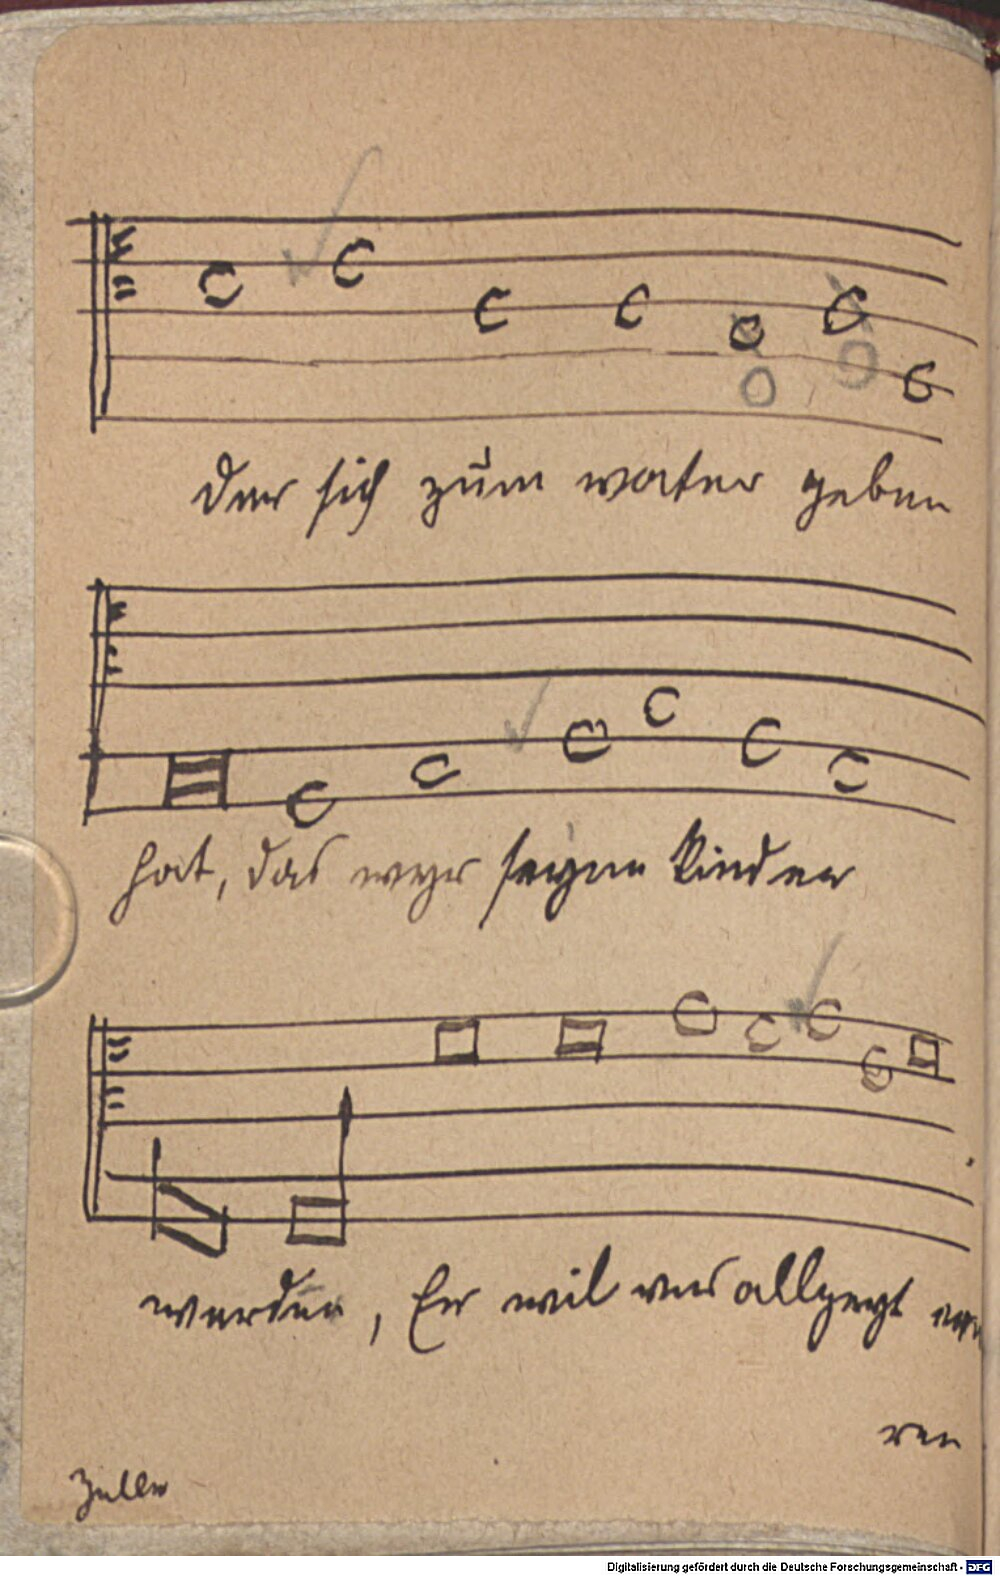 der sich zum vater geben
hat, das wyr seyne kinder
werden, Er wil uns allzeyt erne
ren
Zelle
Digitalisierung gefördert durch die Deutsche Forschungsgemeinschaft - DFG